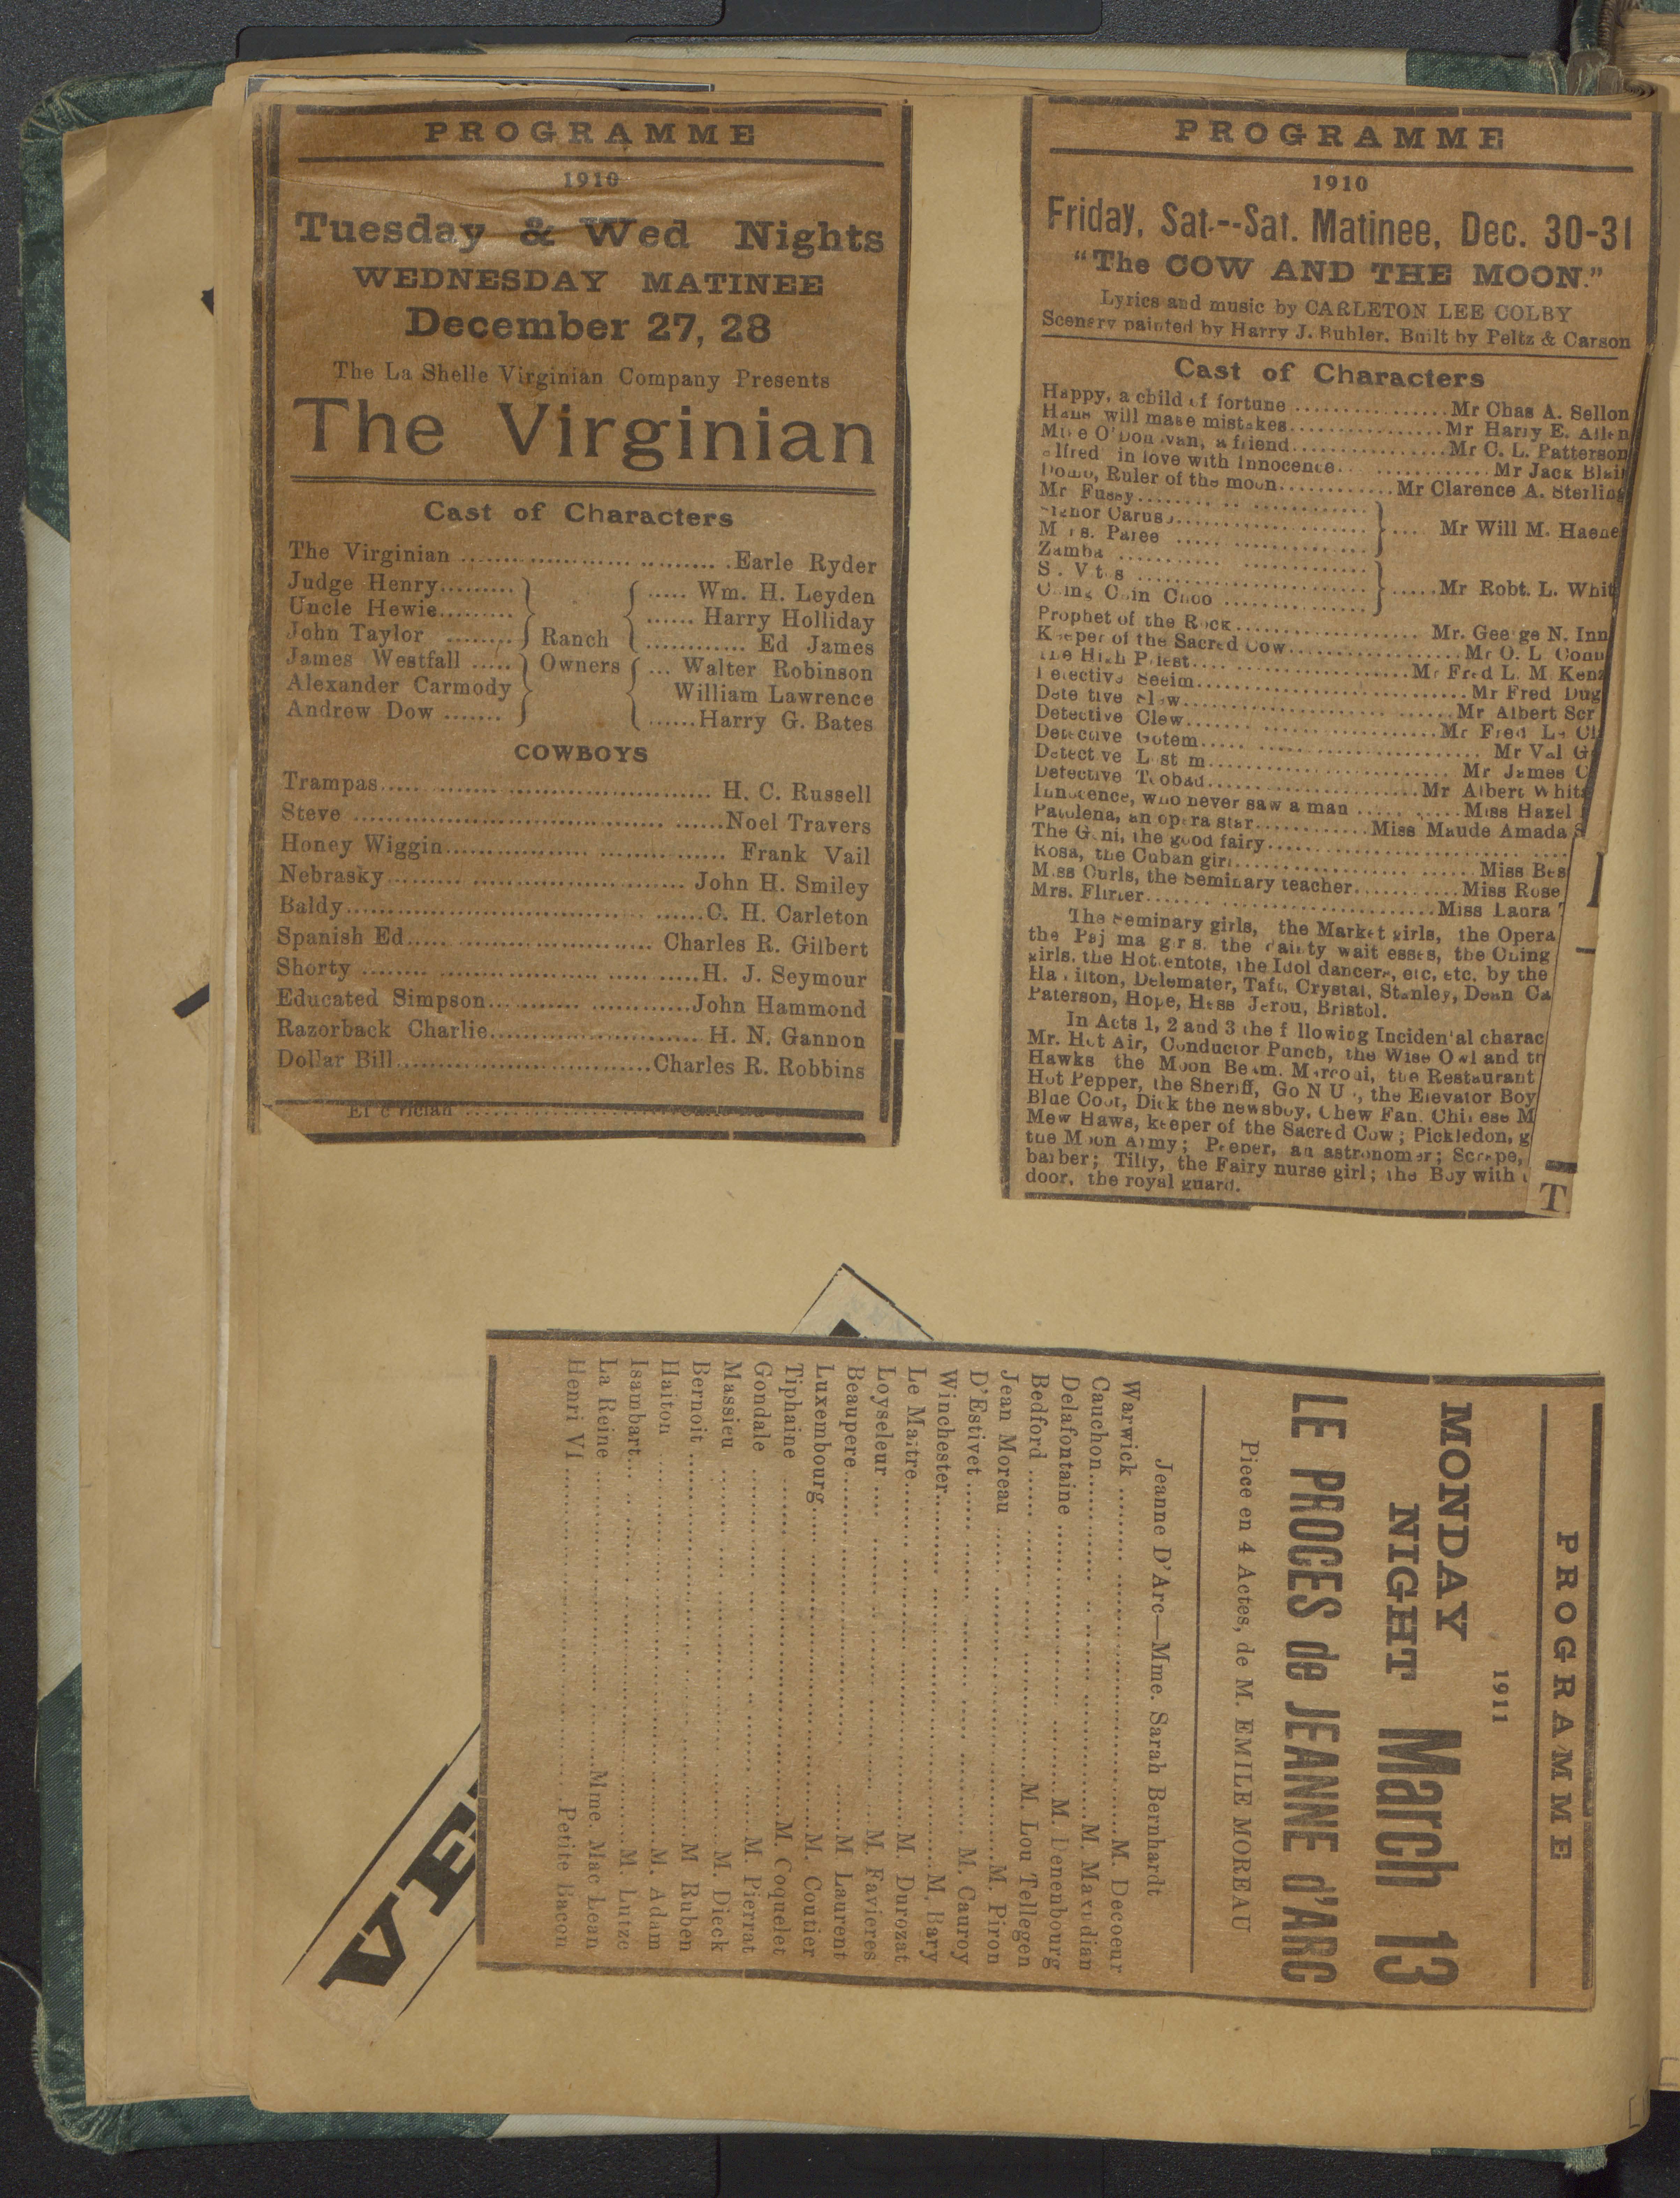 PROGRAMME
1910
Tuesday & Wed Nights
WEDNESDAY MATINEE
December 27, 28
The La Shelle Virginian Company Presents
The Virginian
Cast of Characters
The Virginian ........ Earle Ryder
Judge Henry......... ..... Wm. H. Leyden
Uncle Hewie......... ...... Harry Holliday
John Taylor ........ Ranch ............ Ed James
James Westfall ..... Owners ... Walter Robinson
Alexander Carmody William Lawrence
Andrew Dow ....... ......Harry G. Bates
COWBOYS
Trampas........ H. C. Russell
Steve ........Noel Travers
Honey Wiggin........ Frank Vail
Nebrasky........ John H. Smiley
Baldy........C. H. Carleton
Spanish Ed........ Charles R. Gilbert
Shorty ........H. J. Seymour
Educated Simpson........John Hammond
Razorback Charlie........ H. N. Gannon
Dollar Bill........Charles R. Robbins
PROGRAMME
1910
Friday, Sat.--Sat. Matinee, Dec. 30-31
"The COW AND THE MOON."
Lyrics and music by CARLETON LEE COLBY
Scenery painted by Harry J. Buhler. Built by Peltz & Carson
Cast of Characters
Happy, a child of fortune ........Mr Chas A. Sellon
Hans will make mistakes........Mr Harry E. Allen
a friend........Mr C. L. Patterson
in love with Innocence........Mr Jack Blair
Ruler of the moon........Mr Clarence A. Sterling
Mr Fussy........
........ Mr Will M. Haene
Paree ........
Zamba ........
........Mr Robt. L. Whit
Prophet of the Rock........ Mr. George N. Inn
Keeper of the Sacred Cow........Mr O. L
The High Priest........Mr Fred L. M
Detective Seeim........Mr Fred Dug
Detective Slow........Mr Albert Scr
Detective Clew........Mr Fred
Detective Gotem........ Mr Val G
Detective ........ Mr James C
Detective ........Mr Albert Whit
Innocence, who never saw a man ........Miss Hazel
an opera star........Miss Maude Amada
The Geni, the good fairy........
Rosa, the Cuban girl........ Miss Bes
Miss Curls, the Seminary teacher........Miss Rose
Mrs. Flirter........Miss Laura
The Seminary girls, the Market girls, the Opera
the Pajama girls. the dainty waitesses, the Ching
girls, the Hottentots, the Idol dancers, etc, etc. by the
Hamilton, Delemater, Taft, Crystal, Stanley, Dean Ca
Paterson, Hope, Hess Jerou, Bristol.
In Acts 1, 2 and 3 the following Incidental charac
Mr. Hot Air, Conductor Punch, the Wise Owl and
Hawks the Moon Beam. Marconi, the Restaurant
Hot Pepper, the Sheriff, Go N U , the Elevator Boy
Blue Coat, Dick the newsboy, Chew Fan. Chinese M
Mew Haws, keeper of the Sacred Cow; Pickledon, g
the Moon Army; Peeper, an astronomer; Scrape,
barber; Tilly, the Fairy nurse girl; the Boy with
door, the royal guard.
T
PROGRAMME
1911
MONDAY NIGHT March 13
LE PROCES de JEANNE d'ARC
Piece en 4 Actes, de M. EMILE MOREAU
Jeanne D'Arc—Mme. Sarah Bernhardt
Warwick ........M. Decoeur
Cauchon........M. Maxudian
Delafontaine ........M. Denenbourg
Bedford ........M. Lou Tellegen
Jean Moreau ........M. Piron
D'Estivet........ M. Cauroy
Winchester........M. Bary
Le Maitre........M. Durozat
Loyseleur ........M. Favieres
Beaupere........M Laurent
Luxembourg........M. Coutier
Tiphaine ........M. Coquelet
Gondale ........M. Pierrat
Massieu ........M. Dieck
Bernoit ........M Ruben
Haiton ........M. Adam
Isambart........M. Lutze
La Reine ........Mme. Mac Lean
Henri VI ........Petite Bacon
VE